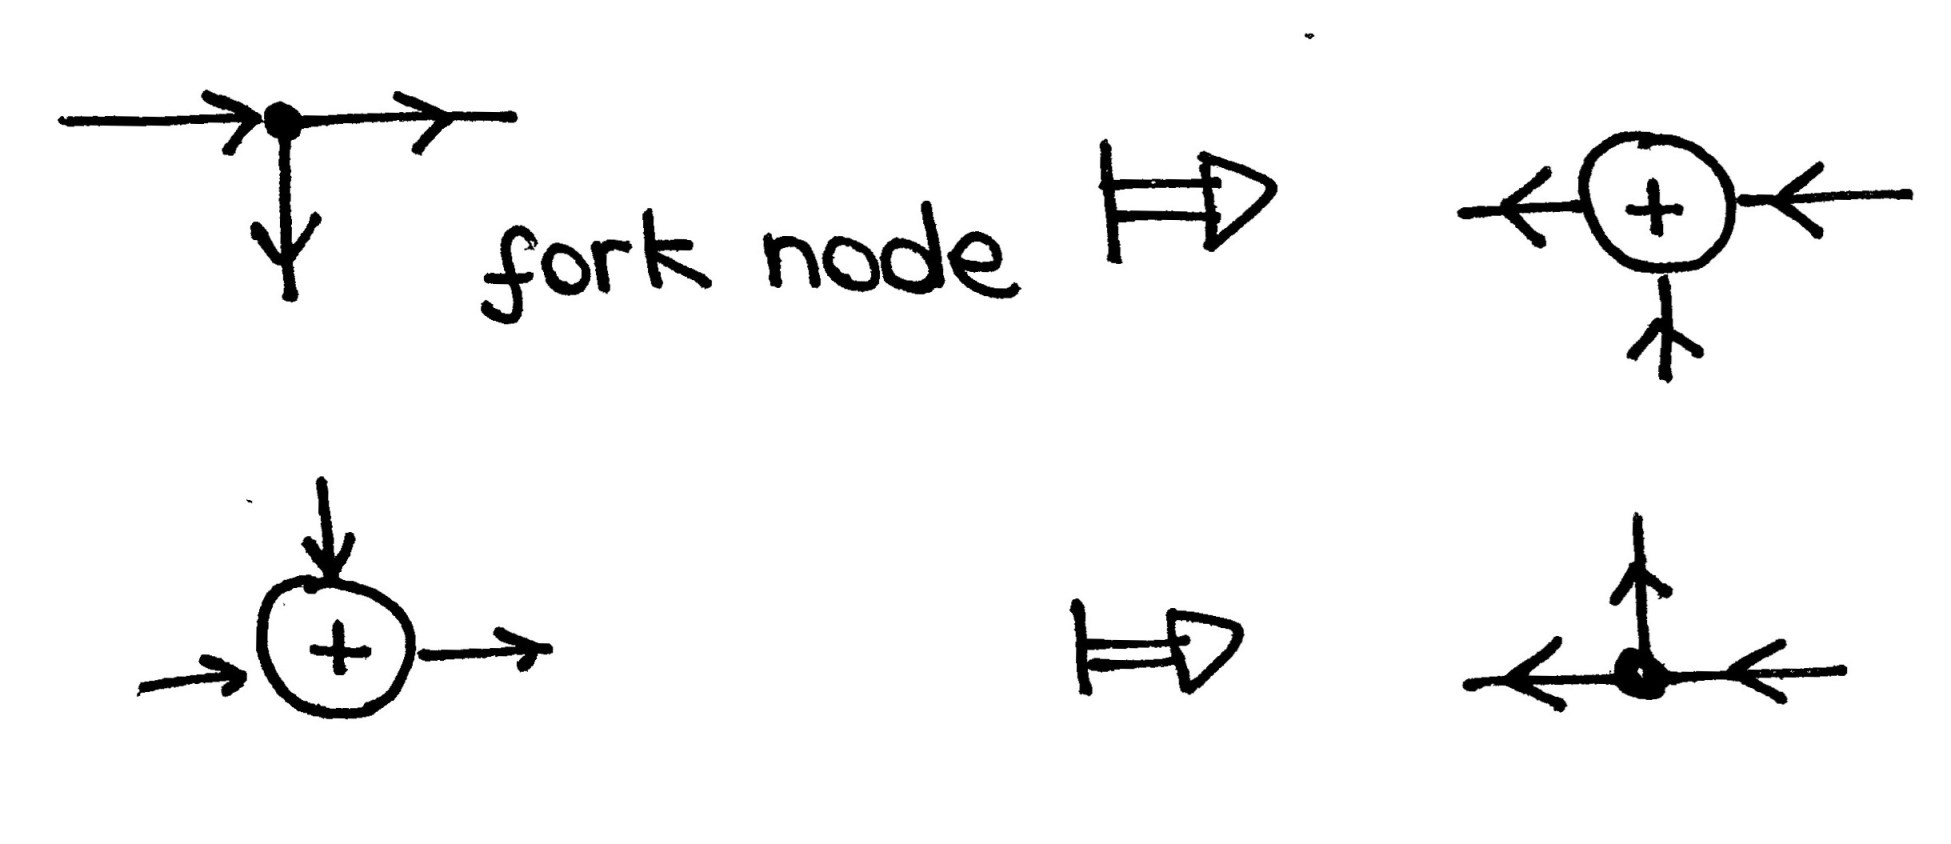 fork node
+
+